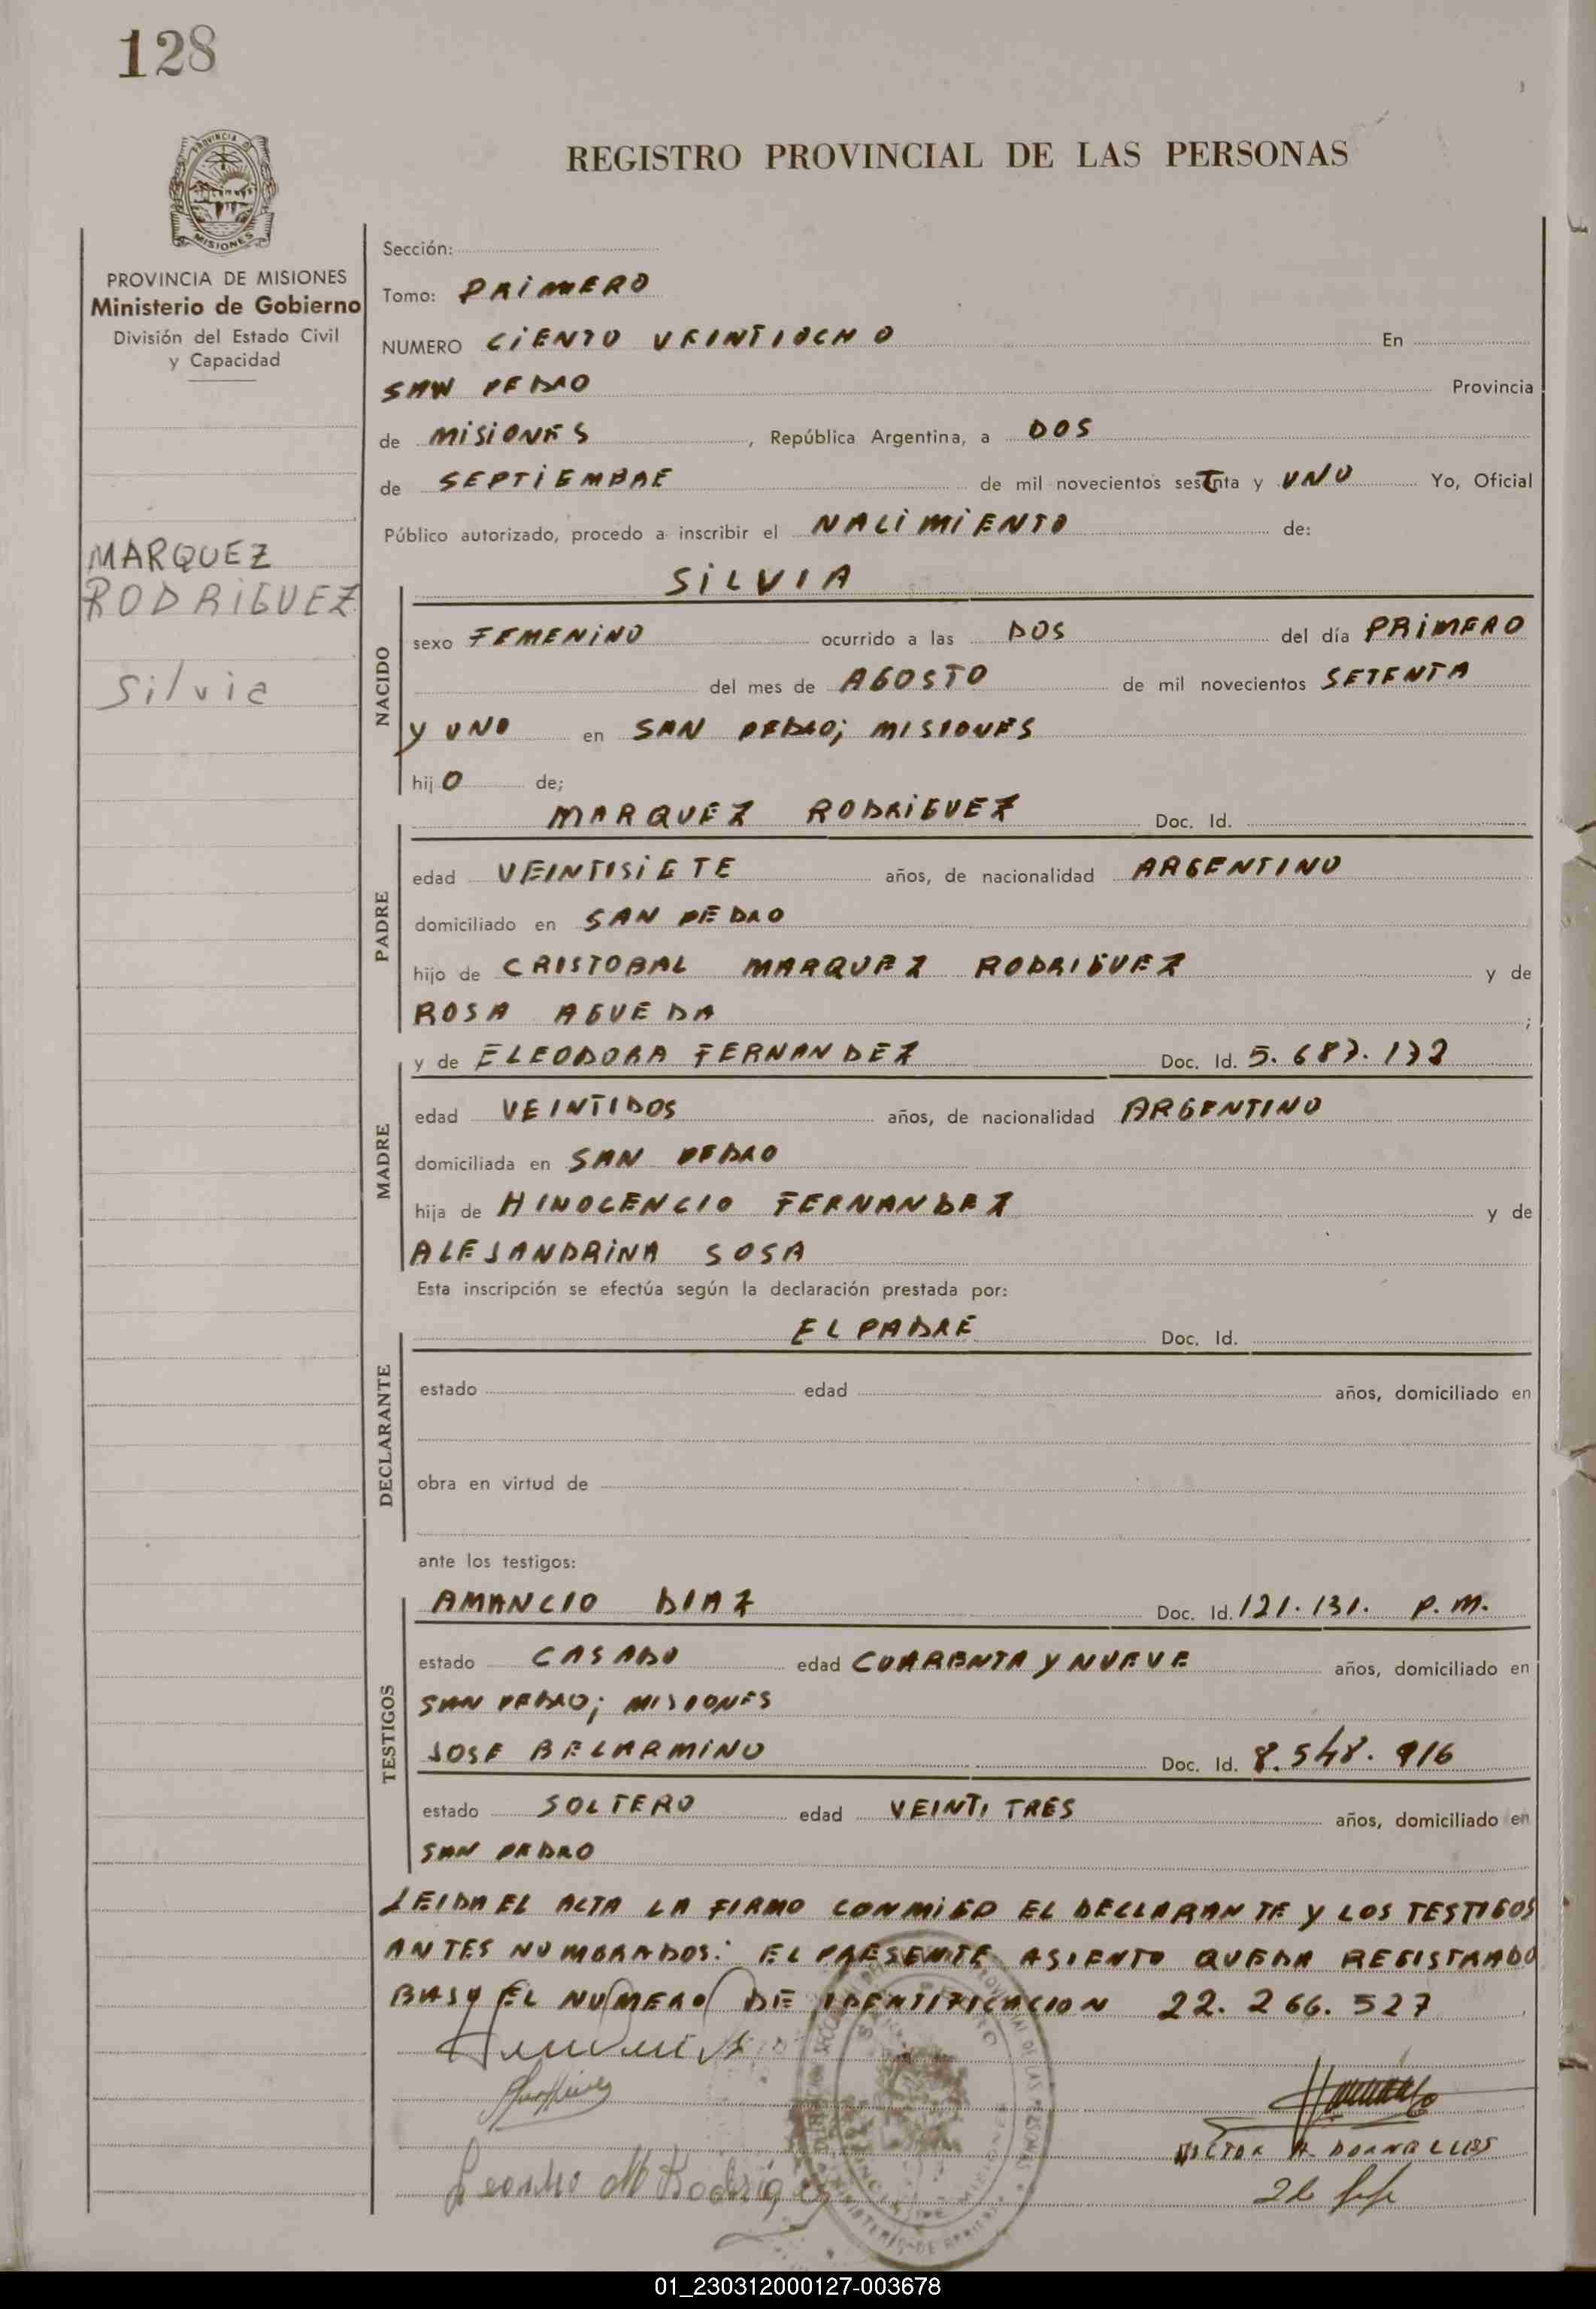 128
PROVINCIA DE MISIONES
REGISTRO PROVINCIAL DE LAS PERSONAS
PROVINCIA DE MISIONES
Ministerio de Gobierno
División del Estado Civil
y Capacidad
MARQUEZ
RODRIGUEZ
Silvia
Sección:
Tomo: PRIMERO
NUMERO CIENTO VEINTIOCHO En
SAN PEDRO Provincia
de MISIONES, República Argentina, a DOS
de SEPTIEMBRE de mil novecientos sesTnta y UNO Yo, Oficial
Público autorizado, procedo a inscribir el NACIMIENTO de:
SILVIA
NACIDO
sexo FEMENINO ocurrido a las DOS del día PRIMERO
del mes de AGOSTO de mil novecientos SETENTA
Y UNO en SAN PEDRO; MISIONES
hij O de;
MARQUEZ RODRIGUEZ Doc. Id.
PADRE
edad VEINTISIETE años, de nacionalidad ARGENTINO
domiciliado en SAN PEDRO
hijo de CRISTOBAL MARQUEZ RODRIGUEZ y de
ROSA AGUEDA ;
y de ELEODORA FERNANDEZ Doc. Id. 5.687.132
MADRE
edad VEINTIDOS años, de nacionalidad ARGENTINO
domiciliada en SAN PEDRO
hija de HINOCENCIO FERNANDEZ y de
ALEJANDRINA SOSA
Esta inscripción se efectúa según la declaración prestada por:
EL PADRE Doc. Id.
DECLARANTE
estado edad años, domiciliado en
obra en virtud de
ante los testigos:
AMANCIO DIAZ Doc. Id. 121.131. P.M.
TESTIGOS
estado CASADO edad CUARENTA Y NUEVE años, domiciliado en
SAN PEDRO; MISIONES
JOSE BELARMINO Doc. Id. 8.548.916
estado SOLTERO edad VEINTI TRES años, domiciliado en
SAN PEDRO
LEIDA EL ACTA LA FIRMO CONMIGO EL DECLARANTE Y LOS TESTIGOS
ANTES NOMBRADOS: EL PRESENTE ASIENTO QUEDA REGISTRADO
BAJO EL NUMERO DE IDENTIFICACION 22.266.527
01_230312000127-003678